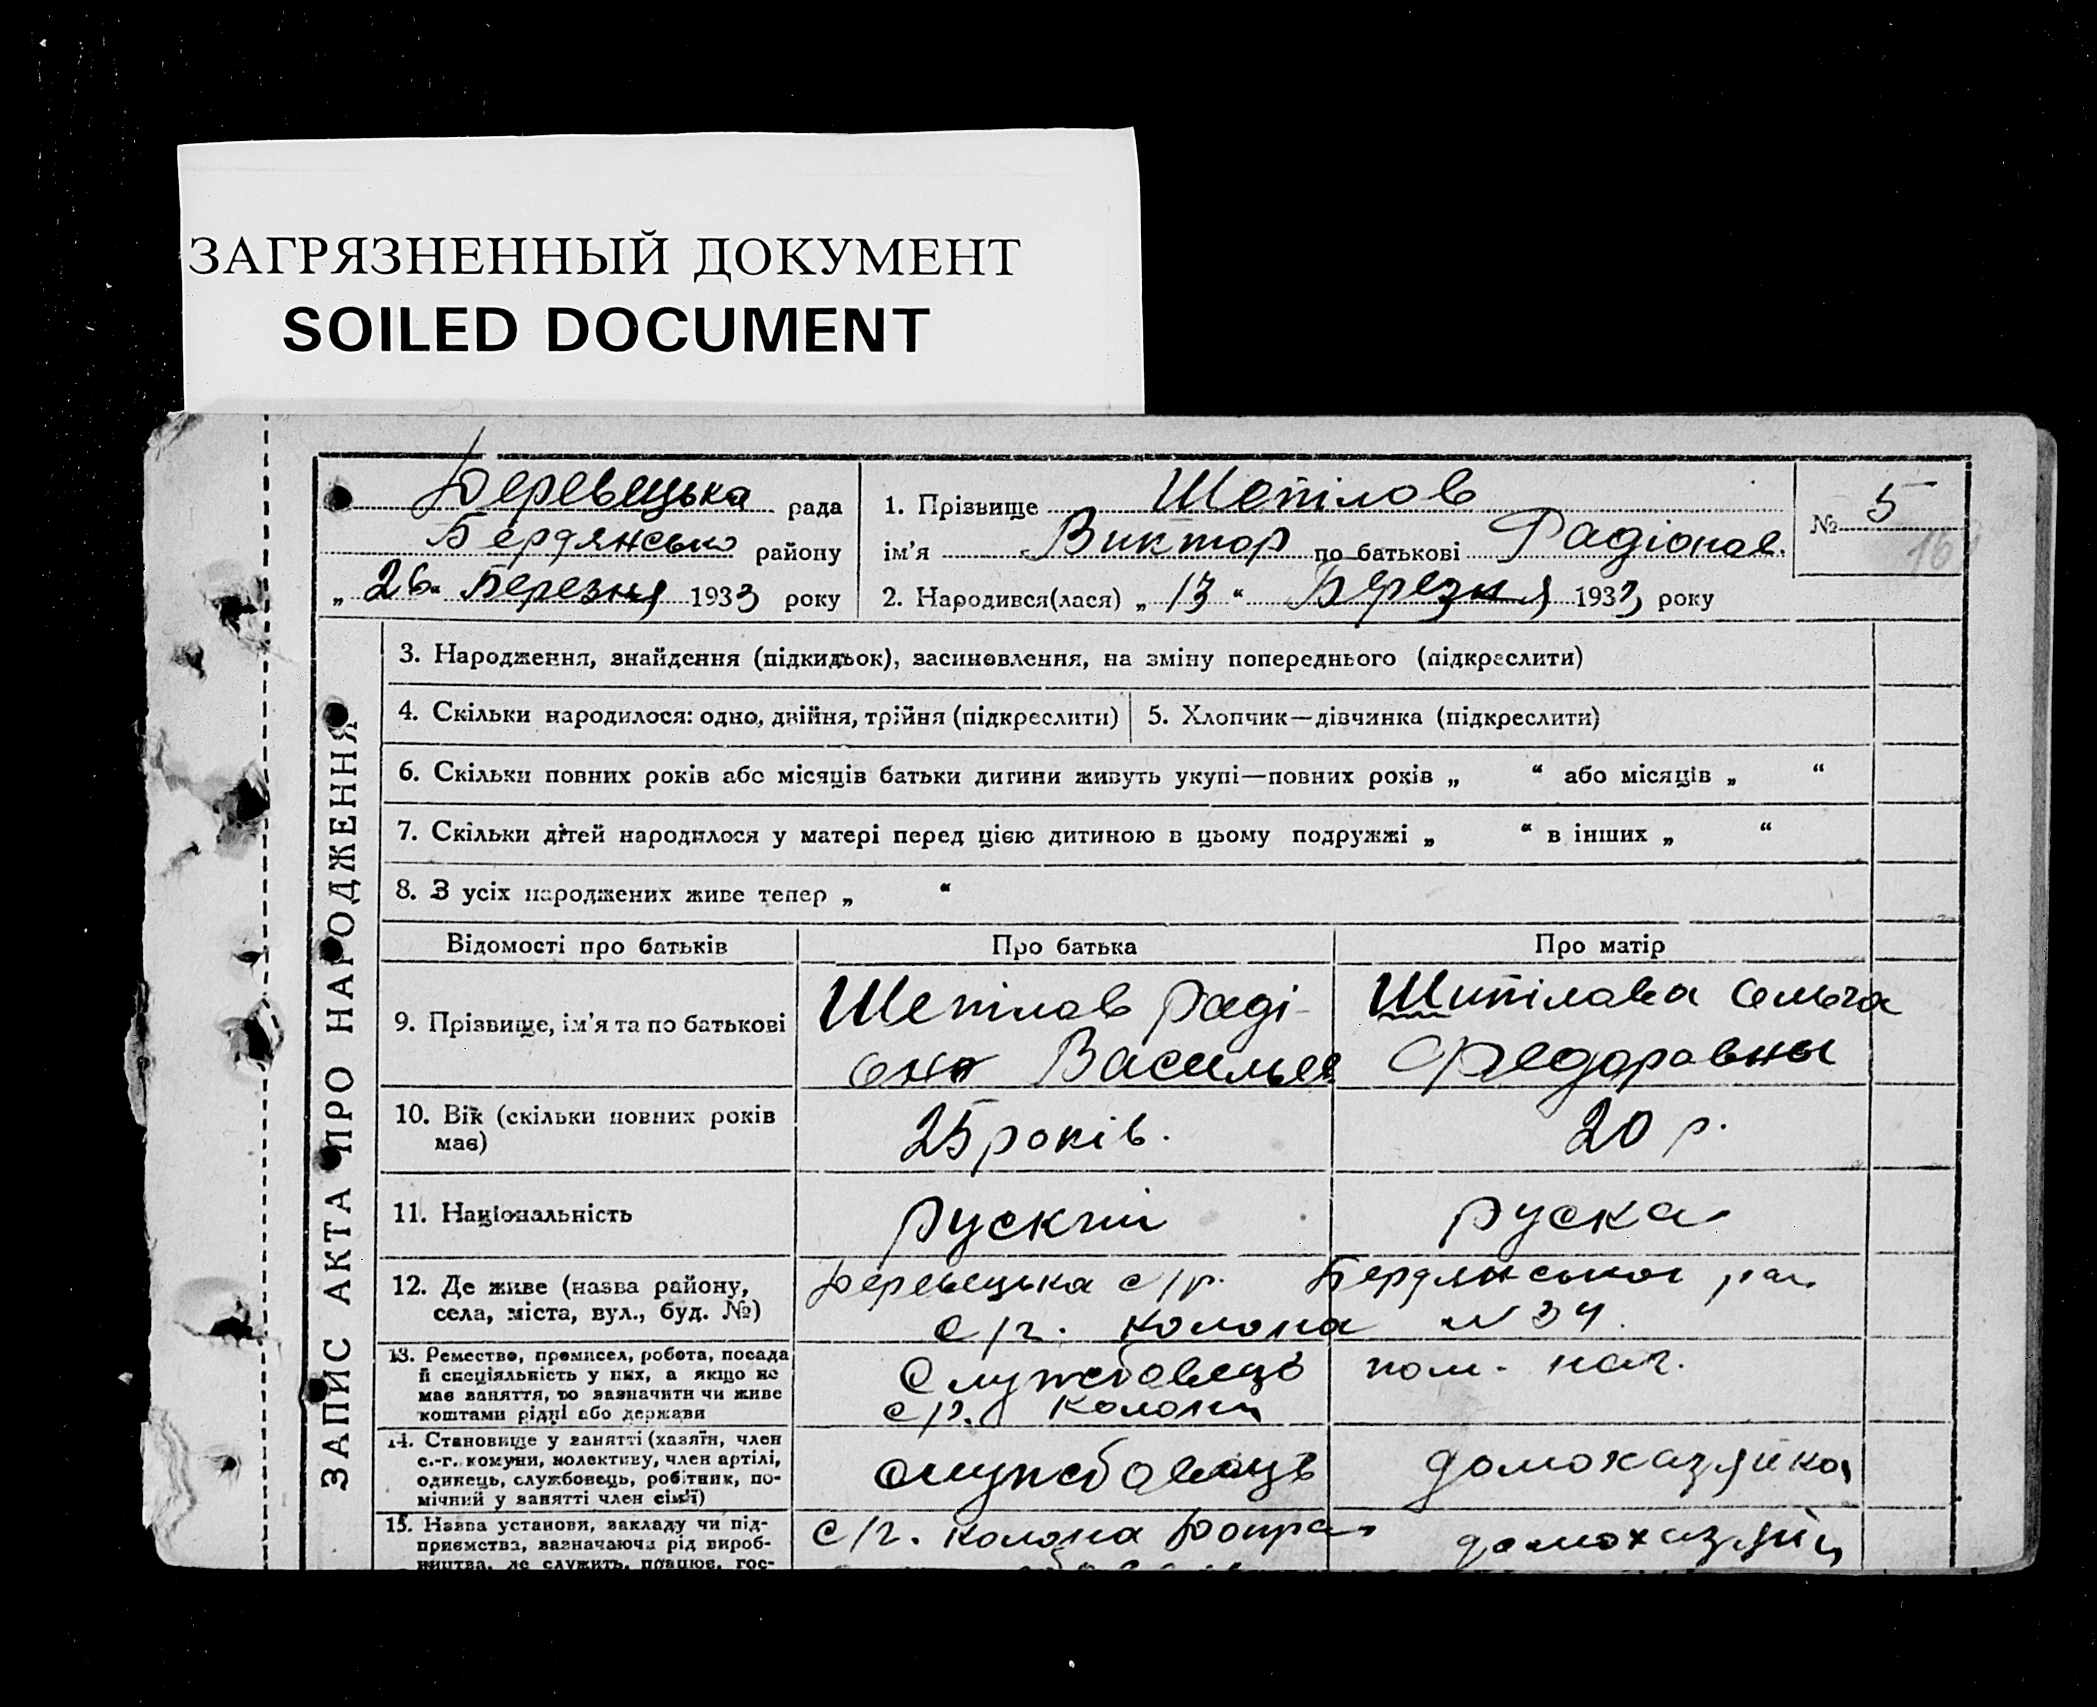 ЗАГРЯЗНЕННЫЙ ДОКУМЕНТ
SOILED DOCUMENT
Деревецька рада
Бердянсько району
„ 26 “ Березня 1933 року
1. Прізвище Шепілов
ім’я Виктор по батькові Радіонов.
2. Народився(лася) „ 13 “ Березня 1933 року
№ 5
16
ЗАПИС АКТА ПРО НАРОДЖЕННЯ
3. Народження, знайдення (підкидьок), засиновлення, на зміну попереднього (підкреслити)
4. Скільки народилося: одно, двійня, трійня (підкреслити)
5. Хлопчик—дівчинка (підкреслити)
6. Скільки повних років або місяців батьки дитини живуть укупі—повних років „ “ або місяців „ “
7. Скільки дітей народилося у матері перед цією дитиною в цьому подружжі „ “ в інших „ “
8. З усіх народжених живе тепер „ “
Відомості про батьків
Про батька
Про матір
9. Прізвище, ім’я та по батькові
Шепілов Раді-
она Васильев
Шипілава
Федоравны
10. Вік (скільки повних років
має)
25 років.
20 р.
11. Національність
руский
руска
12. Де живе (назва району,
села, міста, вул., буд. №)
Деревецька с/р. Бердянської
с/г. колона № 34
13. Ремество, промисел, робота, посада
й спеціяльність у них, а якщо не
має заняття, то зазначити чи живе
коштами рідні або держави
Службовець пом. нач.
с/г. колони
14. Становище у занятті (хазяїн, член
с.-г. комуни, колективу, член артілі,
одинець, службовець, робітник, по-
мічний у занятті член сім’ї)
службовець
домохазяйка
15. Назва установи, закладу чи під-
приємства, зазначаючи рід вироб-
ництва, де служить, працює, гос-
с/г. колона Допра
домохазяй